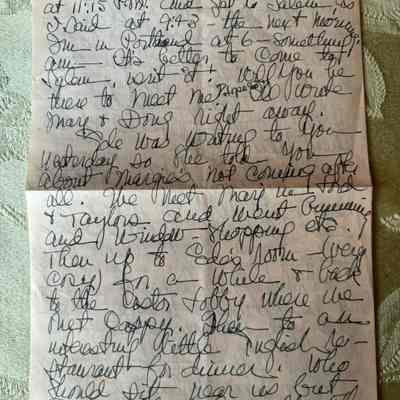 at 11:15 P.M. and get to Salem, as
I said at 9:43 the next morning.
I'm in Portland at 6-something
am - It's better to come to
Salem, isn't it! Will you be
there to meet me I wrote
Mary & Doug right away.
was writing to you
yesterday so she told you
about not coming after
all. We met Mary in Lord
& Taylors and went
and window shopping etc.
Then up to room - (very
cozy) for a while & back
to the Astor Lobby where we
met Then to an
interesting little English re-
staurant for dinner. Who
should sit near us but